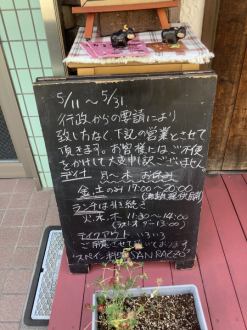 5/11〜5/31
行政からの要請により
致し方なく、下記の営業とさせて
頂きます。お客様にはご不便
をかけして大変申訳ございません。
ディナー 月〜木 お休み
金、土のみ 17:00〜20:00
ランチは引き続き
火、木、木 11:30〜14:00
(ラストオーダー13:00)
テイクアウト いろいろ
ご用意させて頂いております
スペイン料理 SAN RAFAEL